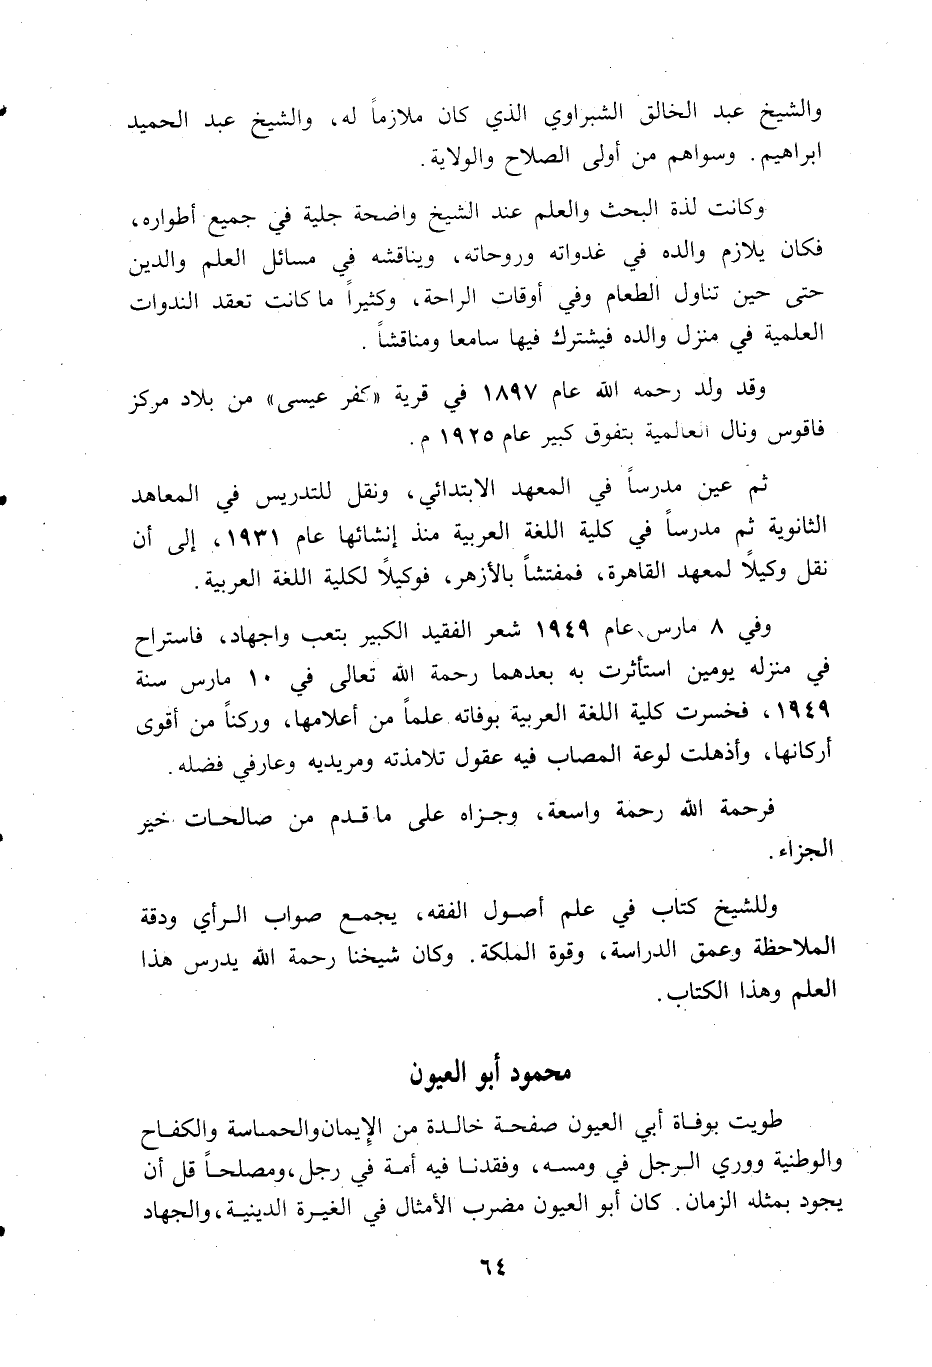 والشيخ عبد الخالق الشبراوي الذي كان ملازماً له، والشيخ عبد الحميد
ابراهيم. وسواهم من أولى الصلاح والولاية.
وكانت لذة البحث والعلم عند الشيخ واضحة جلية في جميع أطواره،
فكان يلازم والده في غدواته وروحاته، ويناقشه في مسائل العلم والدين
حتى حين تناول الطعام وفي أوقات الراحة، وكثيراً ما كانت تعقد الندوات
العلمية في منزل والده فيشترك فيها سامعا ومناقشاً.
وقد ولد رحمه الله عام ١٨٩٧ في قرية «كفر عيسى» من بلاد مركز
فاقوس ونال العالمية بتفوق كبير عام ١٩٢٥ م.
ثم عين مدرساً في المعهد الابتدائي، ونقل للتدريس في المعاهد
الثانوية ثم مدرساً في كلية اللغة العربية منذ إنشائها عام ١٩٣١، إلى أن
نقل وكيلاً لمعهد القاهرة، فمفتشاً بالأزهر، فوكيلاً لكلية اللغة العربية.
وفي ٨ مارس عام ١٩٤٩ شعر الفقيد الكبير بتعب واجهاد، فاستراح
في منزله يومين استأثرت به بعدهما رحمة الله تعالى في ١٠ مارس سنة
١٩٤٩، فخسرت كلية اللغة العربية بوفاته علماً من أعلامها، وركناً من أقوى
أركانها، وأذهلت لوعة المصاب فيه عقول تلامذته ومريديه وعارفي فضله.
فرحمة الله رحمة واسعة، وجزاه على ما قدم من صالحات خير
الجزاء.
وللشيخ كتاب في علم أصول الفقه، يجمع صواب الرأي ودقة
الملاحظة وعمق الدراسة، وقوة الملكة. وكان شيخنا رحمة الله يدرس هذا
العلم وهذا الكتاب.
محمود أبو العيون
طويت بوفاة أبي العيون صفحة خالدة من الإيمان والحماسة والكفاح
والوطنية ووري الرجل في ومسه، وفقدنا فيه أمة في رجل، ومصلحاً قل أن
يجود بمثله الزمان. كان أبو العيون مضرب الأمثال في الغيرة الدينية، والجهاد
٦٤